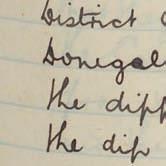 District
Donegal
the dipp
the dip